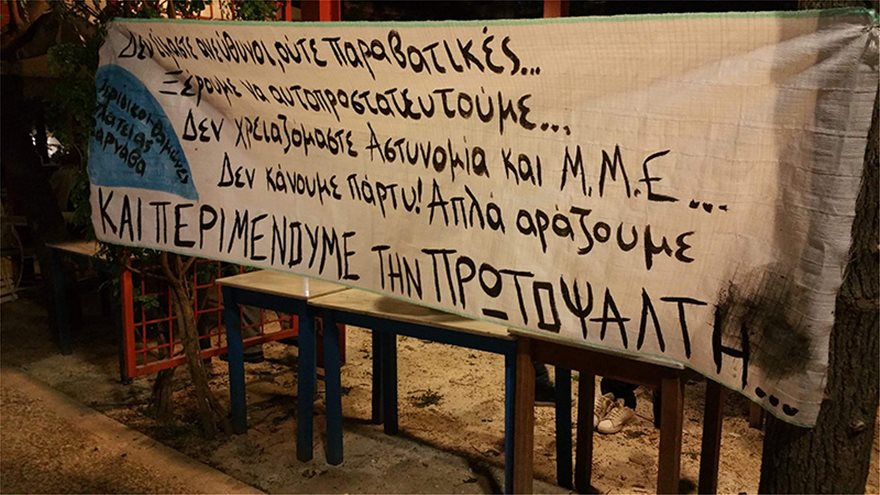 Δεν είμαστε ανεύθυνοι ούτε παραβατικές...
Ξέρουμε να αυτοπροστατευτούμε...
Δεν χρειαζόμαστε Αστυνομία και Μ.Μ.Ε...
Δεν κάνουμε πάρτυ! Απλά αράζουμε
ΚΑΙ ΠΕΡΙΜΕΝΟΥΜΕ ΤΗΝ ΠΡΩΤΟΨΑΛΤΗ...
θαμώνες
Πλατείας
Βαρνάβα